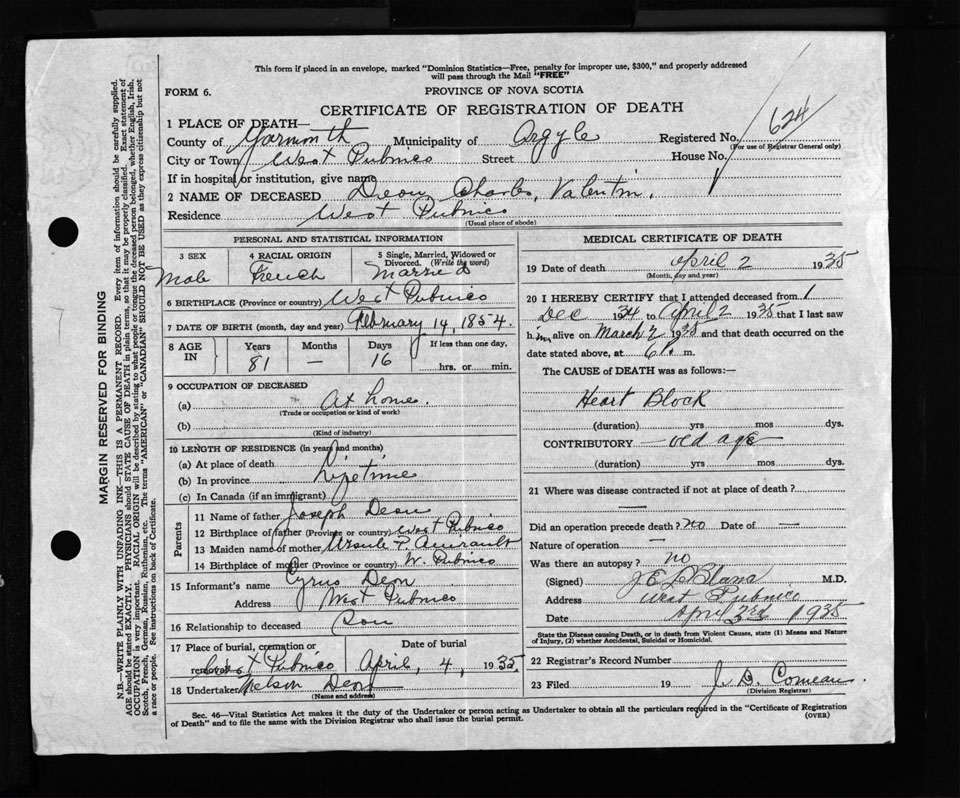 This form if placed in an envelope, marked "Dominion Statistics—Free, penalty for improper use, $300," and properly addressed
will pass through the Mail "FREE"
FORM 6.
PROVINCE OF NOVA SCOTIA
CERTIFICATE OF REGISTRATION OF DEATH
1 PLACE OF DEATH—
County of Yarmouth Municipality of Argyle Registered No. 624
(For use of Registrar General only)
City or Town West Pubnico Street House No.
If in hospital or institution, give name
2 NAME OF DECEASED Deon, Charles, Valentin.
Residence West Pubnico
(Usual place of abode)
PERSONAL AND STATISTICAL INFORMATION
3 SEX Male
4 RACIAL ORIGIN French
5 Single, Married, Widowed or Divorced. (Write the word) Married
6 BIRTHPLACE (Province or country) West Pubnico
7 DATE OF BIRTH (month, day and year) February 14, 1854.
8 AGE IN Years 81 Months — Days 16 If less than one day, hrs. or min.
9 OCCUPATION OF DECEASED
(a) At home.
(Trade or occupation or kind of work)
(b)
(Kind of industry)
10 LENGTH OF RESIDENCE (in years and months)
(a) At place of death
(b) In province Lifetime
(c) In Canada (if an immigrant)
Parents
11 Name of father Joseph Deon
12 Birthplace of father (Province or country) West Pubnico
13 Maiden name of mother Ursule Amirault
14 Birthplace of mother (Province or country) W. Pubnico
15 Informant's name Cyrus Deon
Address West Pubnico
16 Relationship to deceased Son
17 Place of burial, cremation or removal West Pubnico Date of burial April, 4, 1935
18 Undertaker Nelson Deon
(Name and address)
MEDICAL CERTIFICATE OF DEATH
19 Date of death April 2 1935
(Month, day and year)
20 I HEREBY CERTIFY that I attended deceased from 1
Dec 1934 to April 2 1935 that I last saw
him alive on March 1935 and that death occurred on
date stated above, at 6 m.
The CAUSE of DEATH was as follows:—
Heart Block
(duration) yrs mos dys.
CONTRIBUTORY old age
(duration) yrs mos dys.
21 Where was disease contracted if not at place of death?
—
Did an operation precede death? no Date of —
Nature of operation —
Was there an autopsy? no
(Signed) M.D.
Address West Pubnico
Date April 3rd 1935
State the Disease causing Death, or in death from Violent Causes, state (1) Means and Nature
of Injury, (2) whether Accidental, Suicidal or Homicidal.
22 Registrar's Record Number
23 Filed 19 Comeau
(Division Registrar)
Sec. 46—Vital Statistics Act makes it the duty of the Undertaker or person acting as Undertaker to obtain all the particulars required in the "Certificate of Registration
of Death" and to file the same with the Division Registrar who shall issue the burial permit.
(OVER)
MARGIN RESERVED FOR BINDING
N.B.—WRITE PLAINLY WITH UNFADING INK—THIS IS A PERMANENT RECORD. Every item of information should be carefully supplied.
AGE should be stated EXACTLY. PHYSICIANS should STATE CAUSE OF DEATH in plain terms, so that it may be properly classified. Exact statement of
OCCUPATION is very important. RACIAL ORIGIN will be described by stating to what people or tongue the deceased person belonged, whether English, Irish,
Scotch, French, German, Russian, Ruthenian, etc. The terms "AMERICAN" or "CANADIAN" SHOULD NOT BE USED as they express citizenship but not
a race or people. See instructions on back of Certificate.